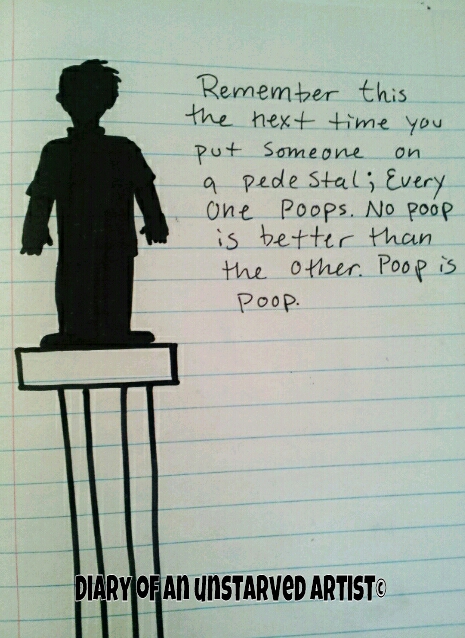 Remember this
the next time you
put someone on
a pedestal; Every
One Poops. No poop
is better than
the other. Poop is
Poop.
DIARY OF AN UNSTARVED ARTIST©